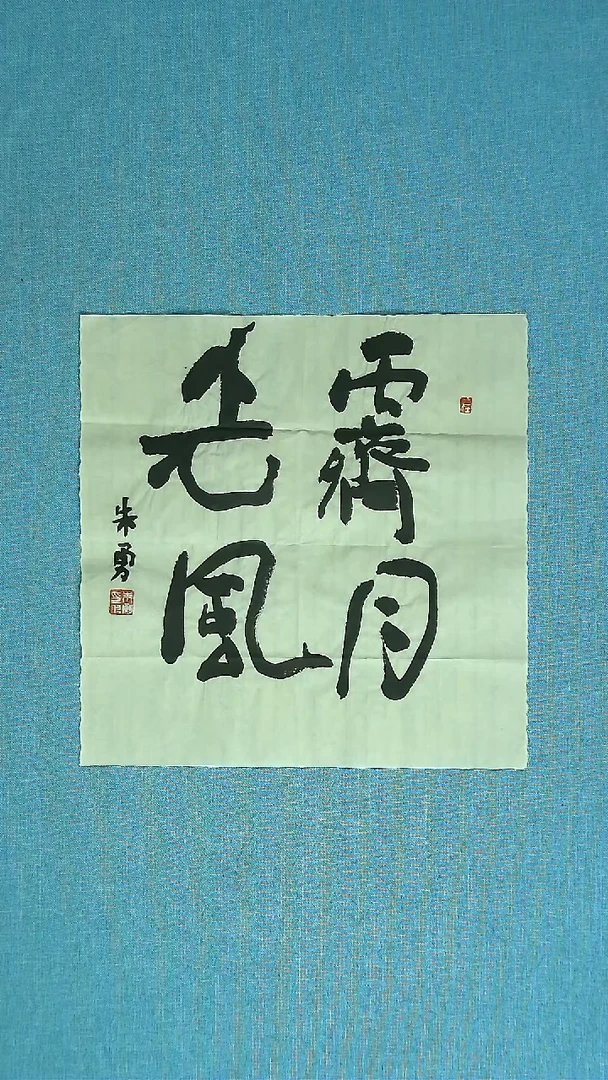 霽月
光風
朱勇